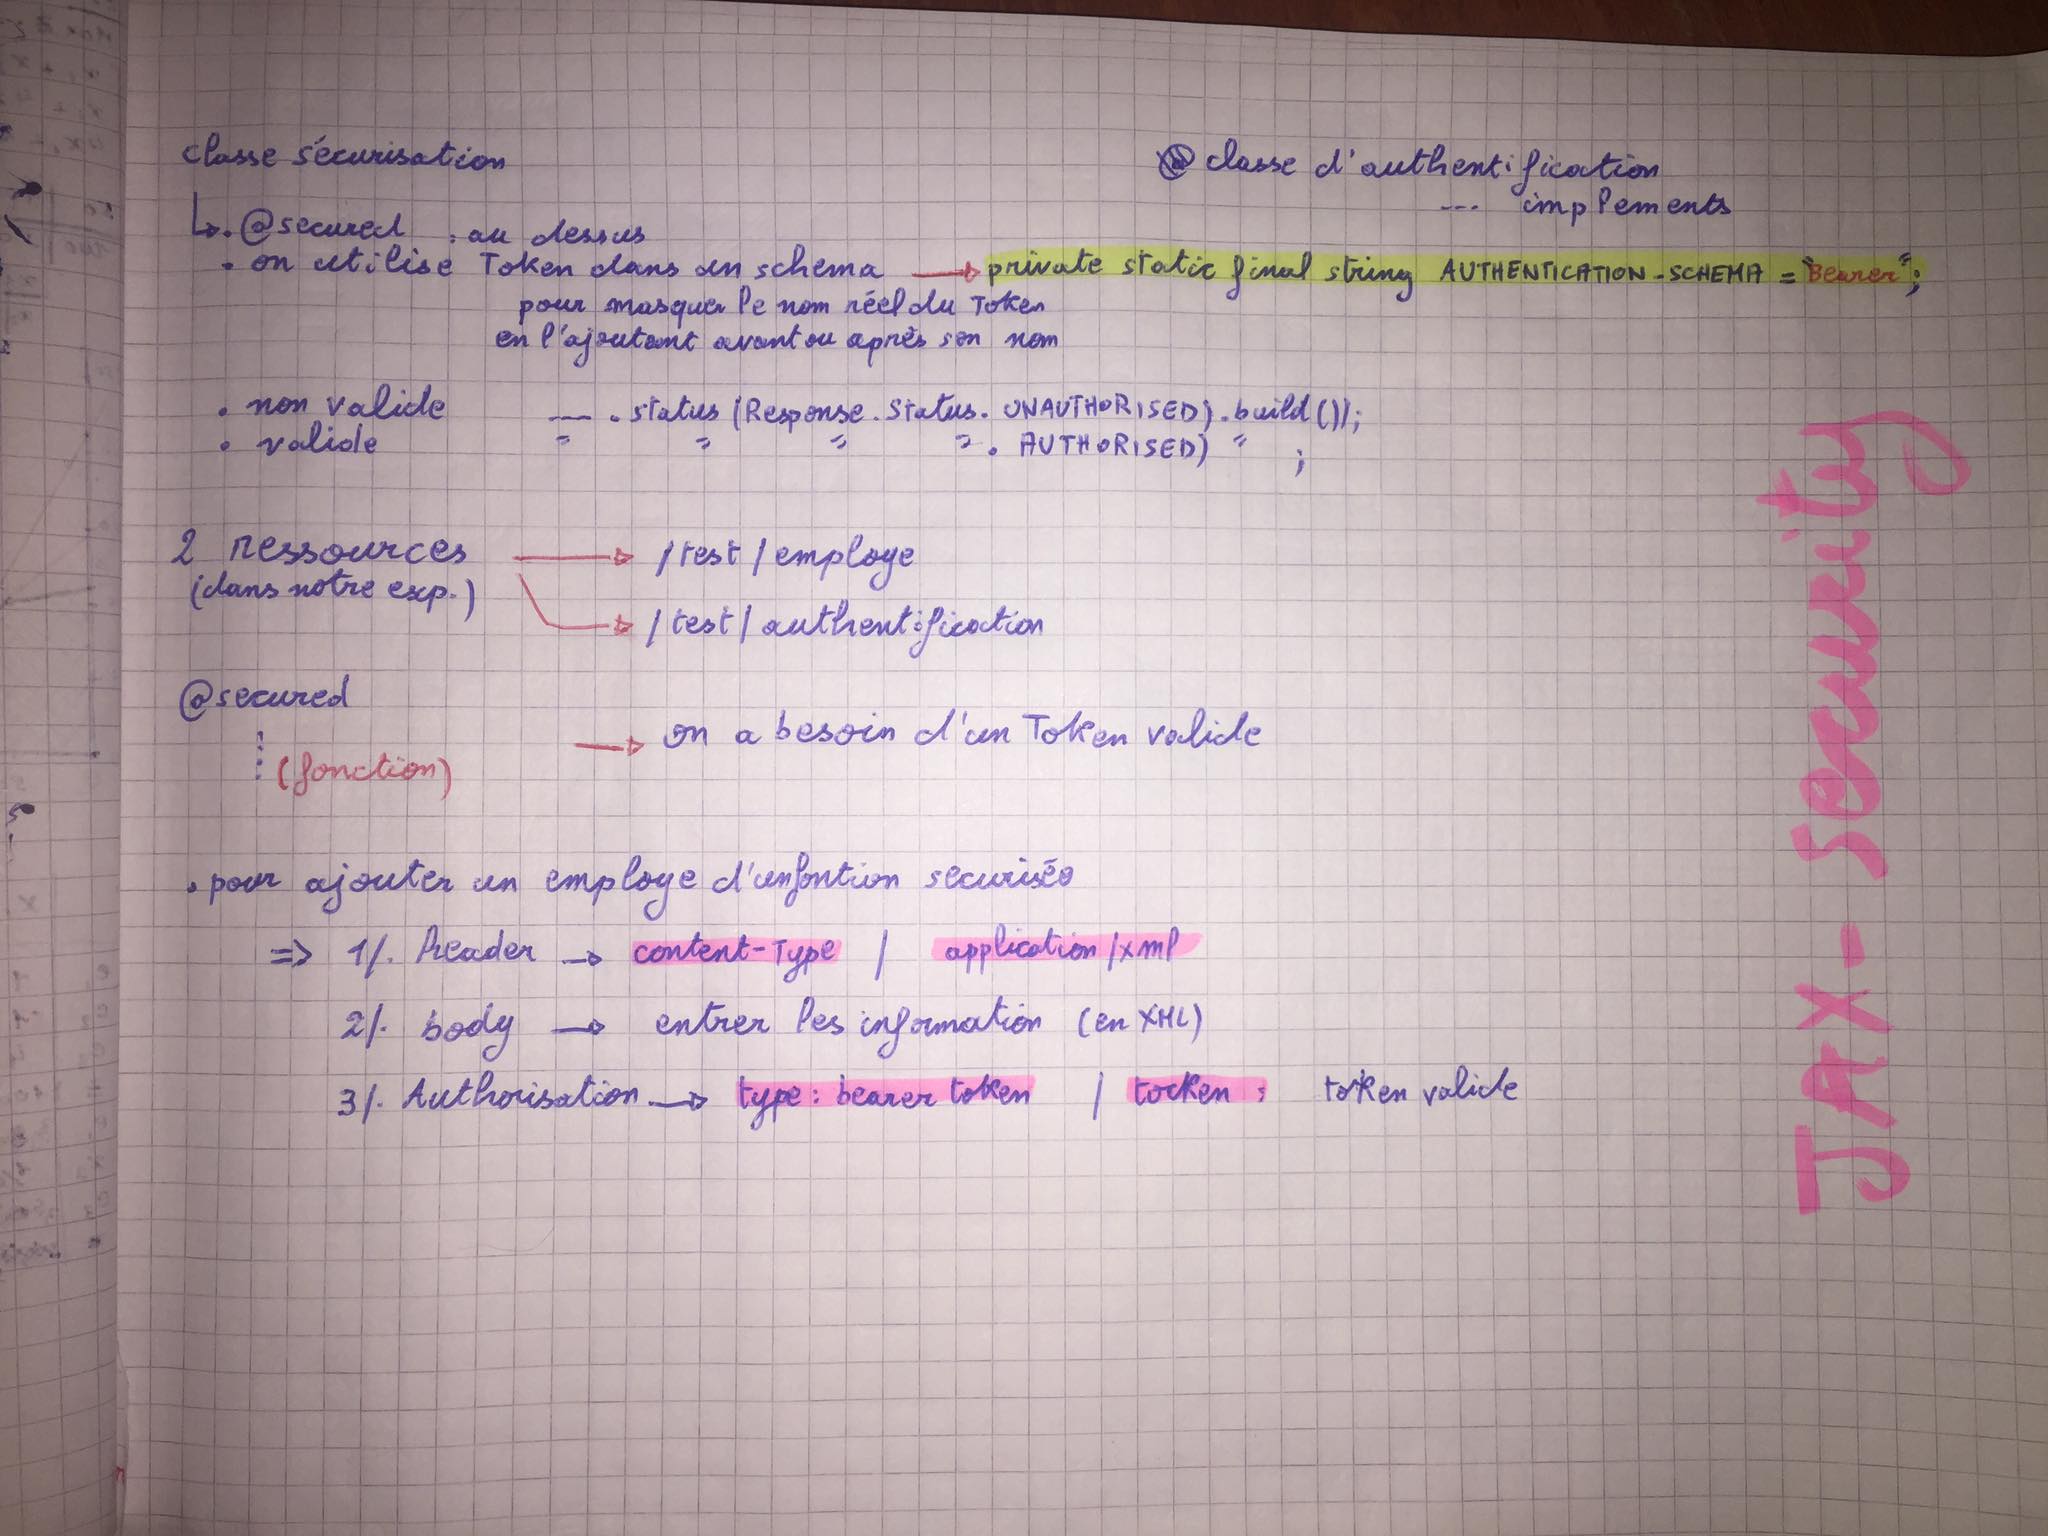 classe sécurisation
classe d'authentification
--- implements
↳ . @secured : au dessus
. on utilise Token dans un schema → private static final string AUTHENTICATION-SCHEMA = "Bearer";
pour masquer le nom réel du Token
en l'ajoutant avant ou après son nom
. non valide --- . status (Response.Status. UNAUTHORISED).build());
. valide " " " " . AUTHORISED) " ;
2 ressources → /test/employe
(dans notre exp.)
→ /test/authentification
@secured
→ on a besoin d'un Token valide
(fonction)
. pour ajouter un employe d'unfontion securiséo
=> 1/. header → content-Type / application/xml
2/. body → entrer les information (en XML)
3/. Authorisation → type: bearer token / tocken : token valide
JAX-Security